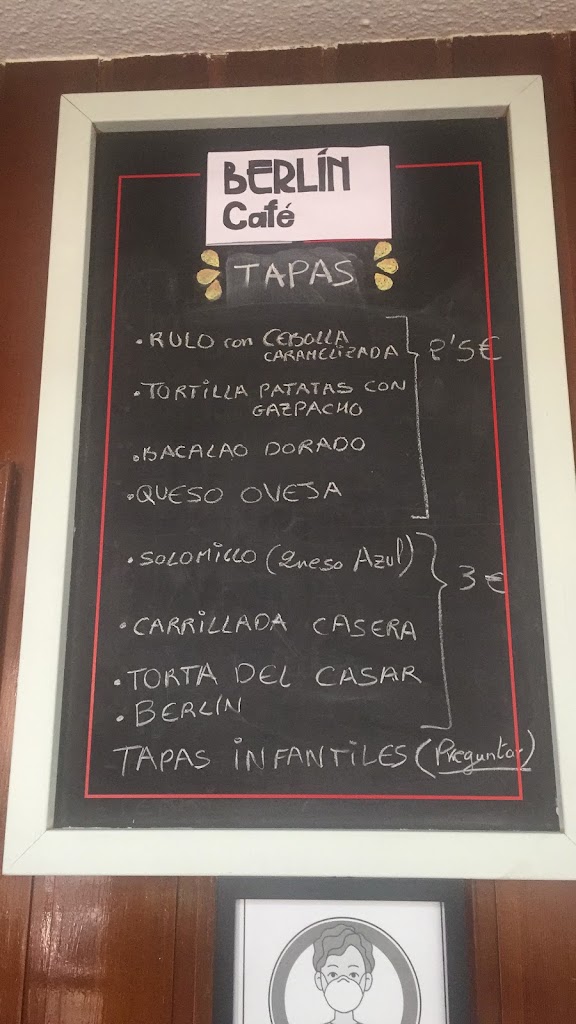 BERLÍN
Café
TAPAS
• RULO con CEBOLLA
CARAMELIZADA
2'5€
• TORTILLA PATATAS CON
GAZPACHO
• BACALAO DORADO
• QUESO OVEJA
• SOLOMILLO (Queso Azul)
3€
• CARRILLADA CASERA
• TORTA DEL CASAR
• BERLÍN
TAPAS INFANTILES (Preguntar)